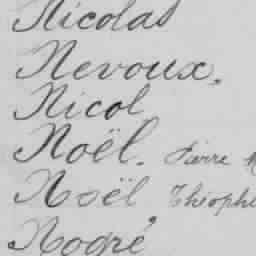 Nicolas
Nevoux.
Nicol
Noël. Pierre
Noël Théophi
Nogré